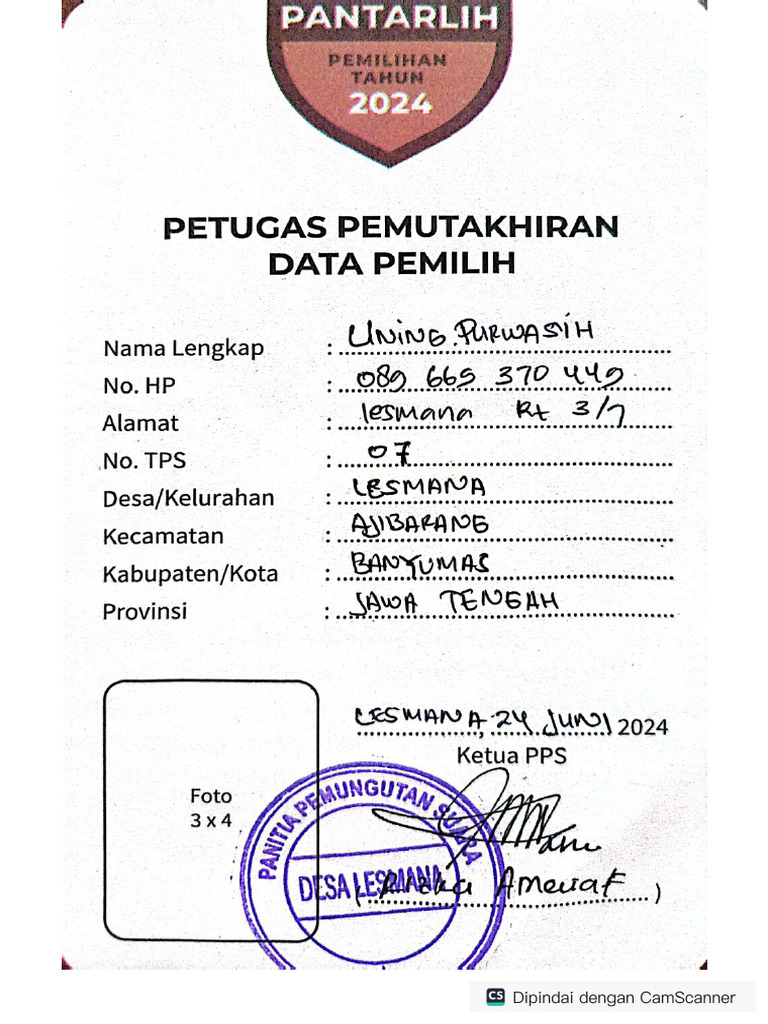 PANTARLIH
PEMILIHAN
TAHUN
2024
PETUGAS PEMUTAKHIRAN
DATA PEMILIH
Nama Lengkap : UNING PURWASIH
No. HP : 089 669 370 449
Alamat : lesmana Rt 3/7
No. TPS : 07
Desa/Kelurahan : LESMANA
Kecamatan : AJIBARANG
Kabupaten/Kota : BANYUMAS
Provinsi : JAWA TENGAH
LESMANA, 24 JUNI 2024
Ketua PPS
Foto
3 x 4
PANITIA PEMUNGUTAN SUARA
DESA LESMANA
( Rizka )
CS Dipindai dengan CamScanner